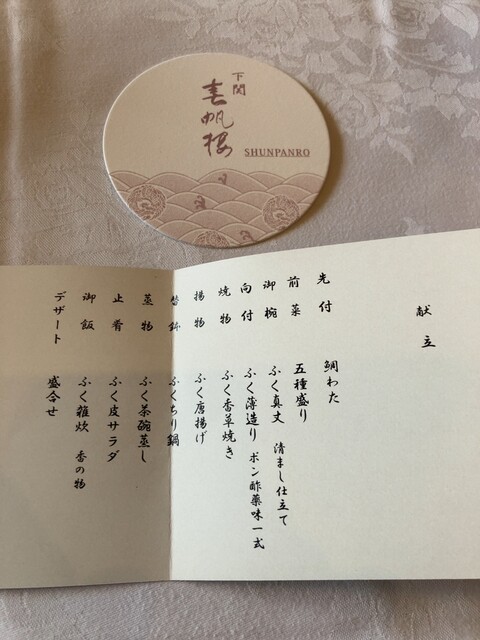 下関
春帆楼
SHUNPANRO
献立
先付 鯛わた
前菜 五種盛り
御椀 ふく真丈 清まし仕立て
向付 ふく薄造り ポン酢薬味一式
焼物 ふく香草焼き
揚物 ふく唐揚げ
替鉢 ふくちり鍋
蒸物 ふく茶碗蒸し
止肴 ふく皮サラダ
御飯 ふく雑炊 香の物
デザート 盛合せ